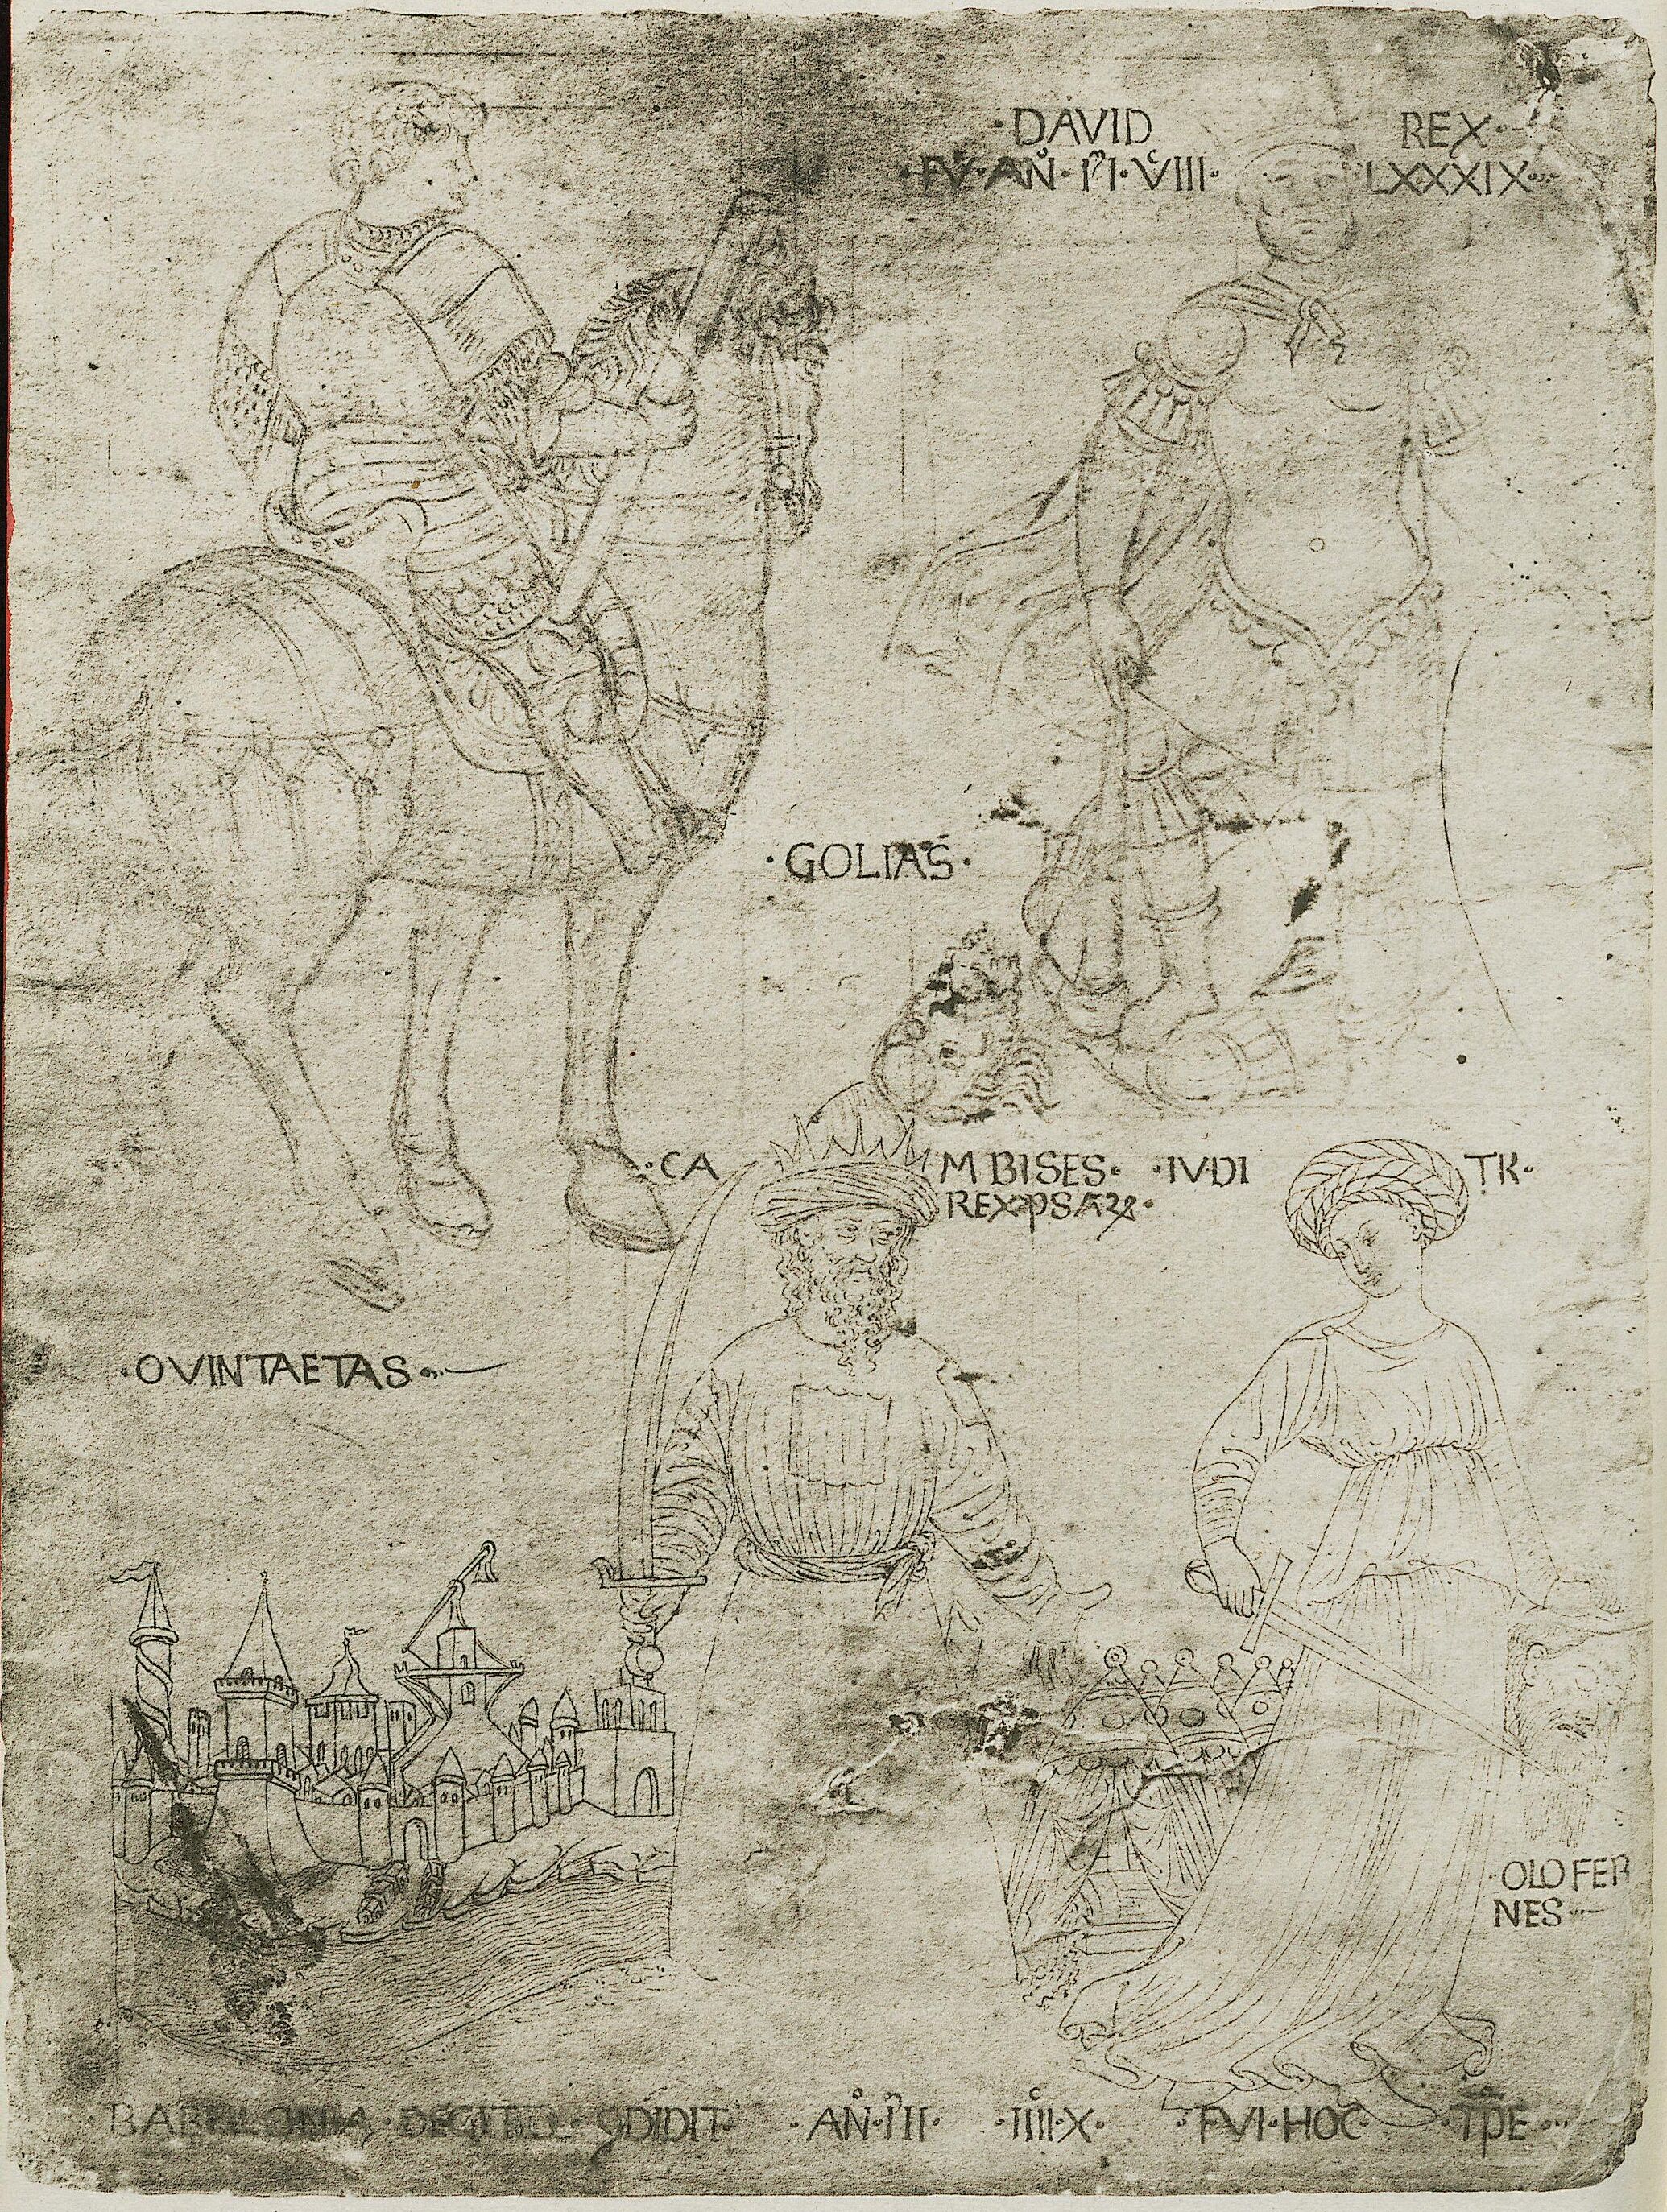 ·DAVID REX·
·FV·AN̊·M̊I·V̊III· LXXXIX·
·GOLIAS·
·CA M BISES· ·IVDI TK·
REX·PSAꝜ·
·OVINTAETAS·
·OLOFER
NES·
BABILONIA· ꝯDIDIT· ·AN̊·M̊II· ·IIII̊·X· ·FVI·HOC· ·TPE·